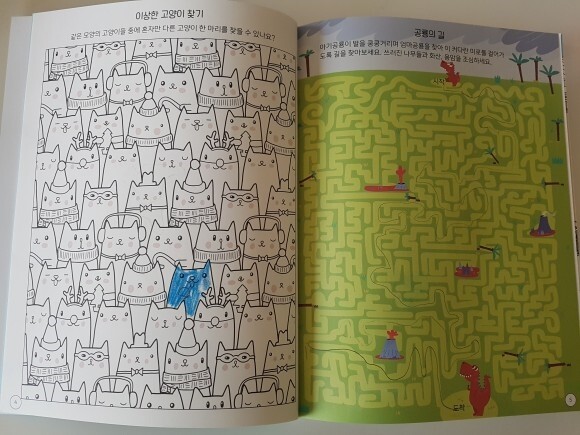 이상한 고양이 찾기
같은 모양의 고양이들 중에 혼자만 다른 고양이 한 마리를 찾을 수 있나요?
공룡의 길
아기공룡이 발을 쿵쿵거리며 엄마공룡을 찾아 이 커다란 미로를 걸어가
도록 길을 찾아보세요. 쓰러진 나무들과 화산, 용암을 조심하세요.
시작
도착
4
5